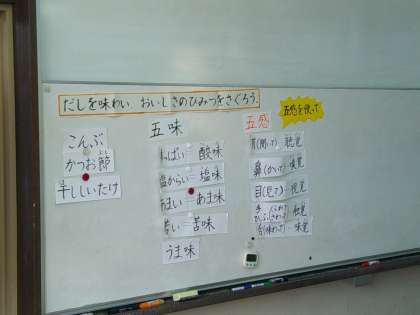 だしを味わい、おいしさのひみつをさぐろう。
五感を使って
こんぶ
かつお節
干ししいたけ
五味
っぱい 酸味
塩からい 塩味
あまい あま味
苦い 苦味
うま味
五感
耳(聞いて) 聴覚
鼻(かいで) 嗅覚
目(見て) 視覚
手 触覚
舌(味わって) 味覚